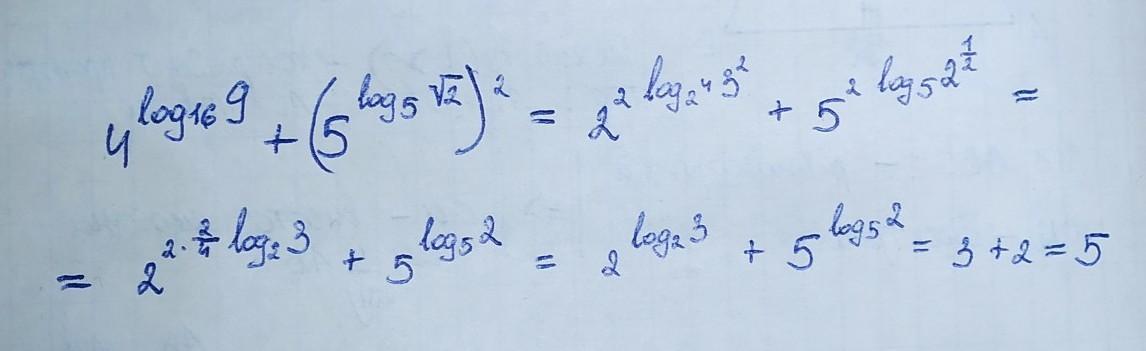 4^{log_{16} 9} + (5^{log_5 √2})^2 = 2^{2 log_{2^4} 3^2} + 5^{2 log_5 2^{1/2}} =
= 2^{2·2/4 log_2 3} + 5^{log_5 2} = 2^{log_2 3} + 5^{log_5 2} = 3 + 2 = 5